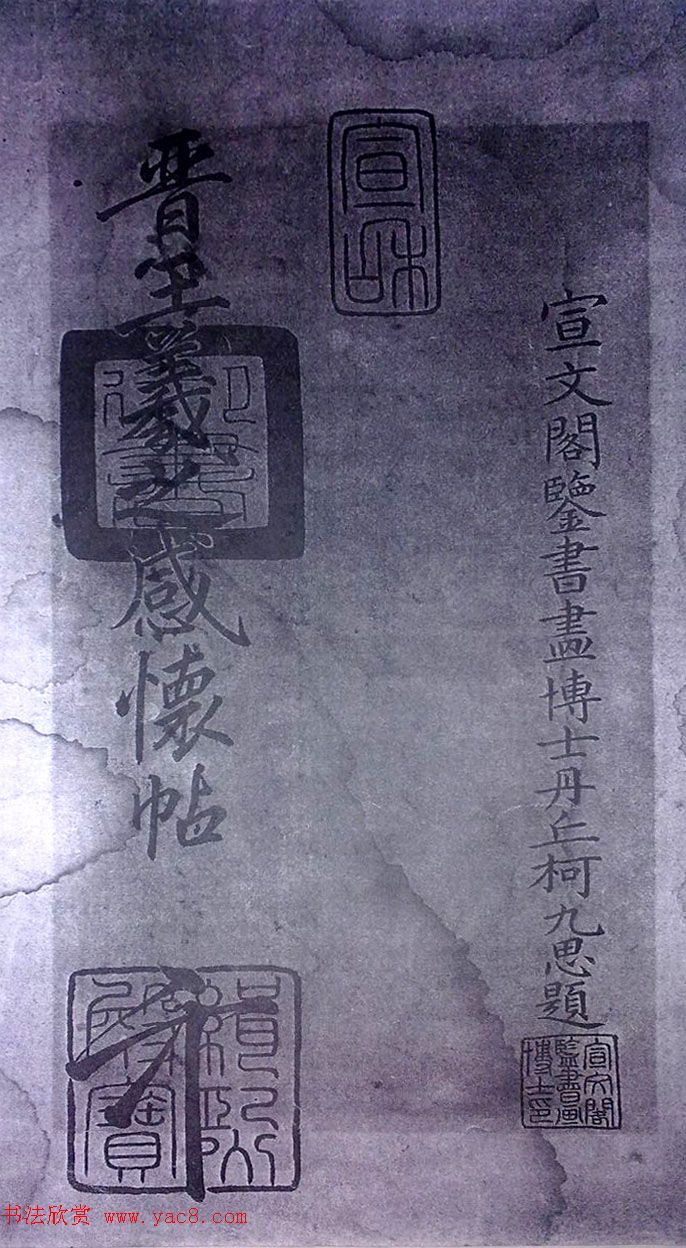 宣文閣鑒書畫博士丹丘柯九思題
宣文閣
監書画
博士印
宣和
晋王羲之感懷帖
緝熙
殿寶
书法欣赏 www.yac8.com